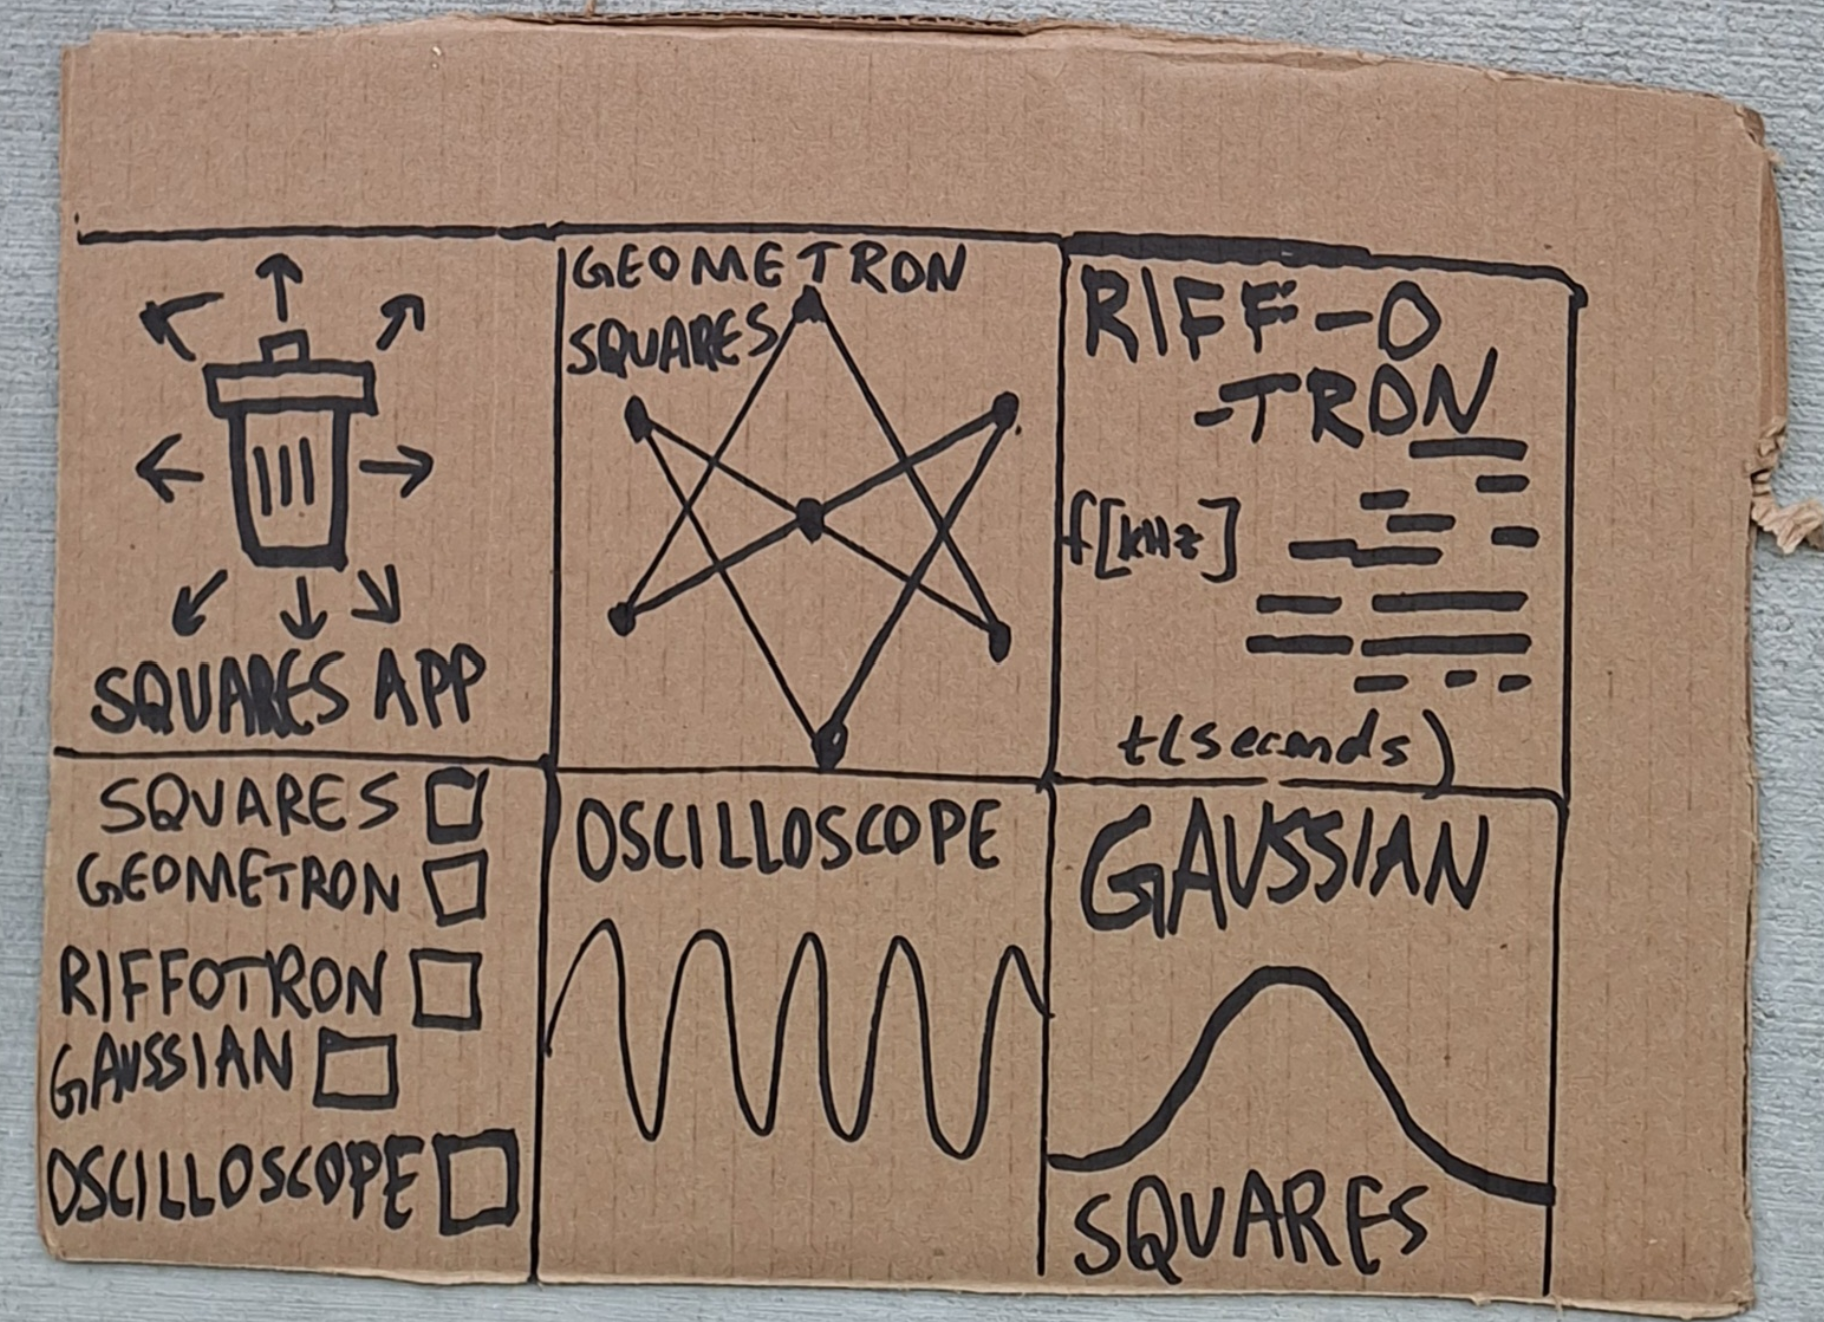 SQUARES APP
GEOMETRON
SQUARES
RIFF-O
-TRON
f[kHz]
t(seconds)
SQUARES
GEOMETRON
RIFFOTRON
GAUSSIAN
OSCILLOSCOPE
OSCILLOSCOPE
GAUSSIAN
SQUARES